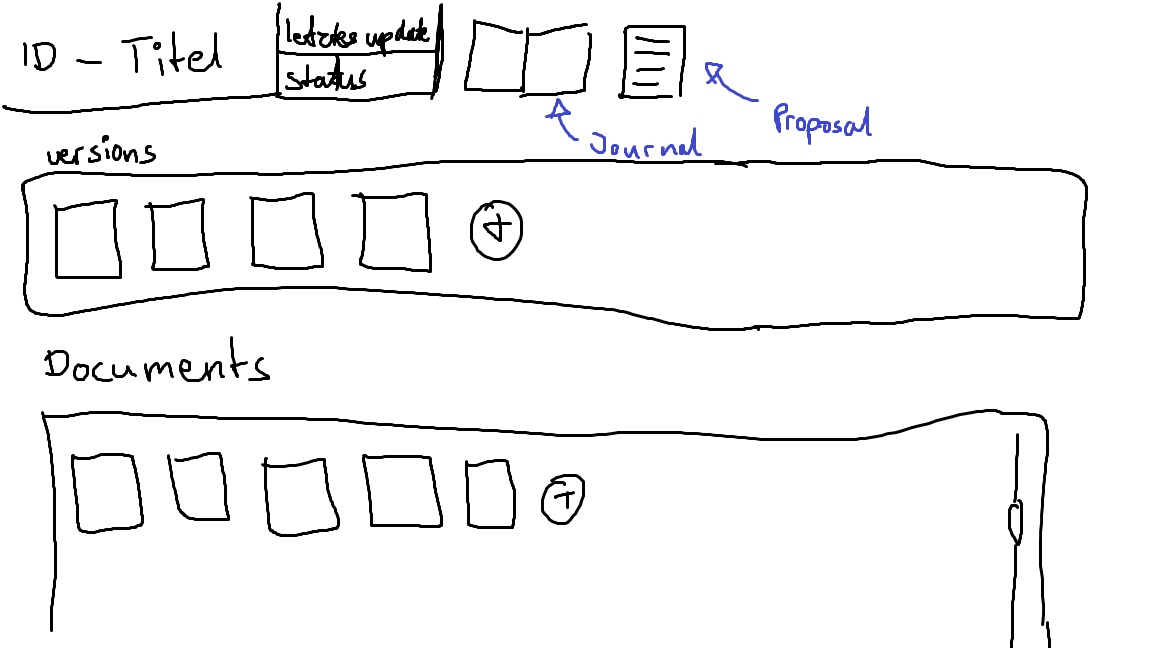 ID - Titel
letztes update
status
Journal
Proposal
versions
+
Documents
+